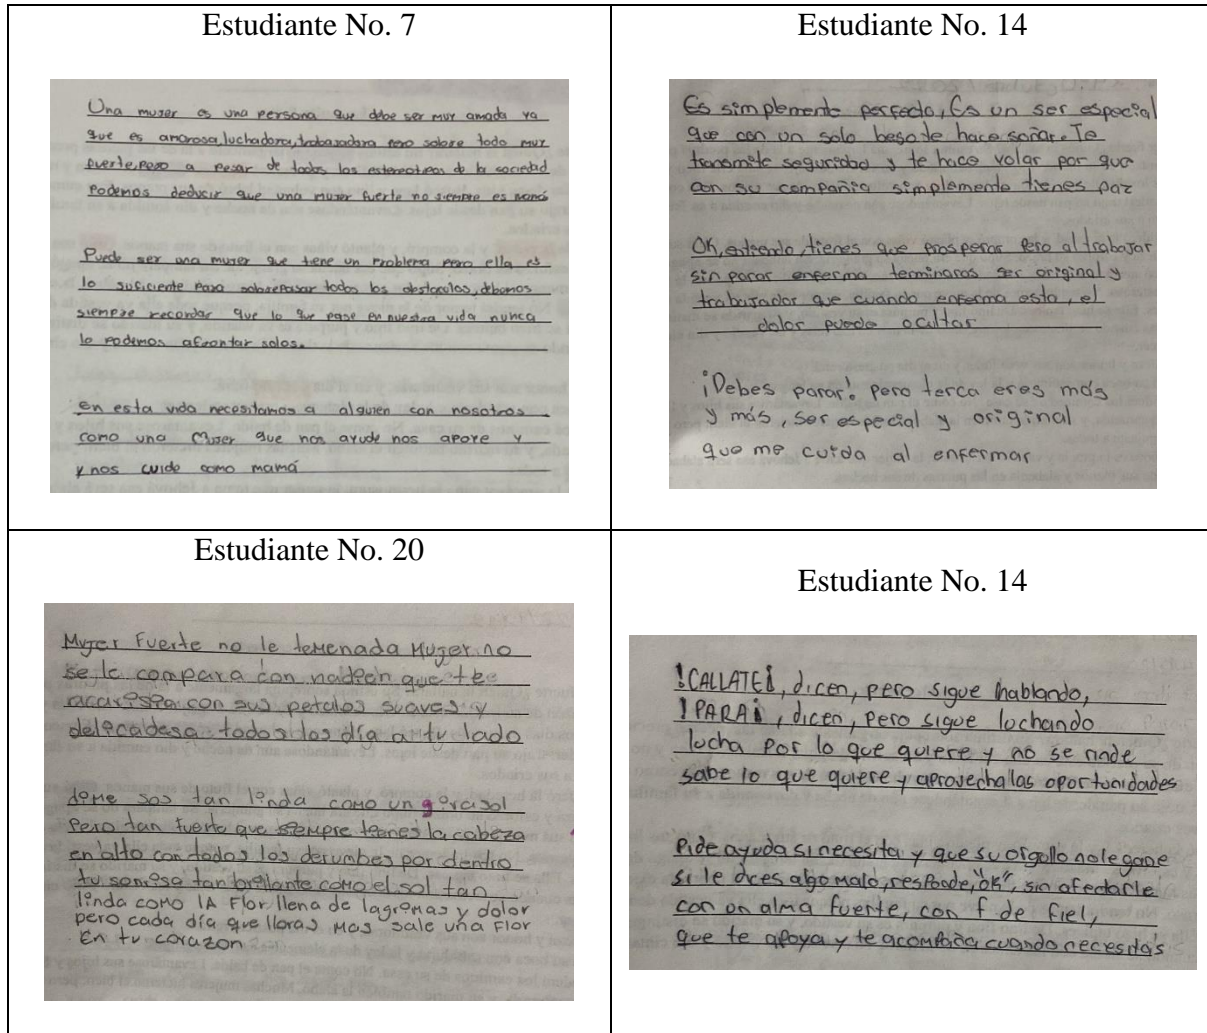 Estudiante No. 7
Una muger es una persona que debe ser muy amada ya
que es amorosa, luchadora, trabajadora pero sobre todo muy
fuerte, pero a pesar de todos los estereotipos de la sociedad
Podemos deducir que una muger fuerte no siempre es mamá
Puede ser una muger que tiene un problema pero ella es
lo suficiente para sobrepasar todos los obstaculos, debemos
siempre recordar que lo que pase en nuestra vida nunca
lo podemos afrontar solos.
en esta vida necesitamos a alguien con nosotros
como una Muger que nos ayude nos apoye y
y nos cuide como mamá
Estudiante No. 14
Es simplemente perfecto, Es un ser especial
que con un solo beso te hace soñar. Te
transmite seguridad y te hace volar por que
con su compañia simplemente tienes paz
OK, entiendo, tienes que prosperar pero al trabajar
sin parar enferma terminaras ser original y
trabajador que cuando enferma esta, el
dolor puede ocultar
¡Debes parar! pero terca eres más
y más, ser especial y original
que me cuida al enfermar
Estudiante No. 20
Mujer Fuerte no le temenada Mujer no
se le compara con nadien que te
acarisia con sus petalos suaves y
delicaldesa todos los día a tu lado
dime sos tan linda como un girasol
Pero tan fuerte que siempre tienes la cabeza
en alto con todos los derumbes por dentro
tu sonrisa tan brillante como el sol tan
linda como lA Flor llena de lagremas y dolor
pero cada día que lloras mas sale una Flor
En tu corazon
Estudiante No. 14
!CALLATE¡, dicen, pero sigue hablando,
!PARA¡, dicen, pero sigue luchando
lucha por lo que quiere y no se rinde
sabe lo que quiere y aprovecha las oportunidades
Pide ayuda si necesita y que su orgullo no le gane
si le dices algo malo, responde, "ok", sin afectarle
con un alma fuerte, con f de fiel,
que te apoya y te acompaña cuando necesitas